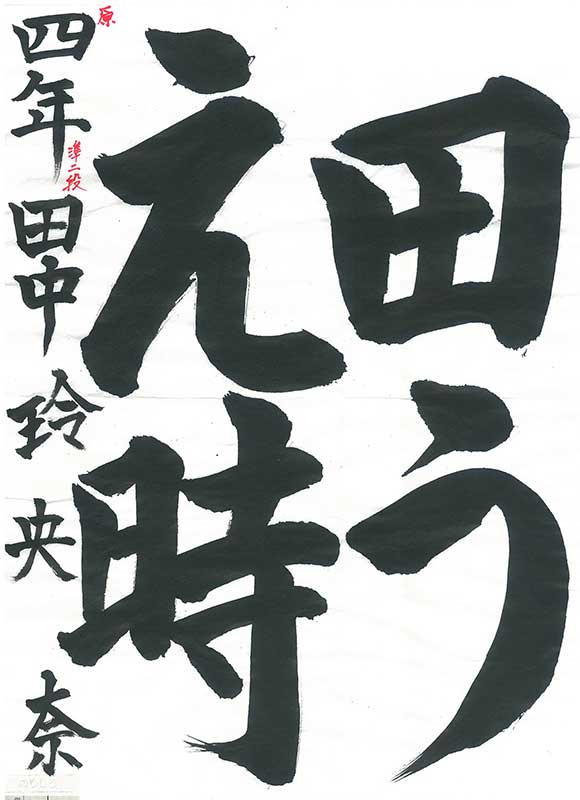 田う
え時
四年 田中玲央奈
原
準二段